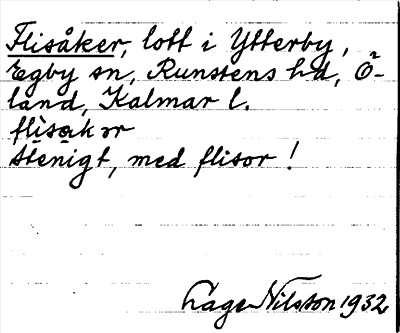 Flisåker, lott i Ytterby,
Egby sn, Runstens hd, Ö-
land, Kalmar l.
flìsakər
Stenigt, med flisor!
Lage Nilsson 1932